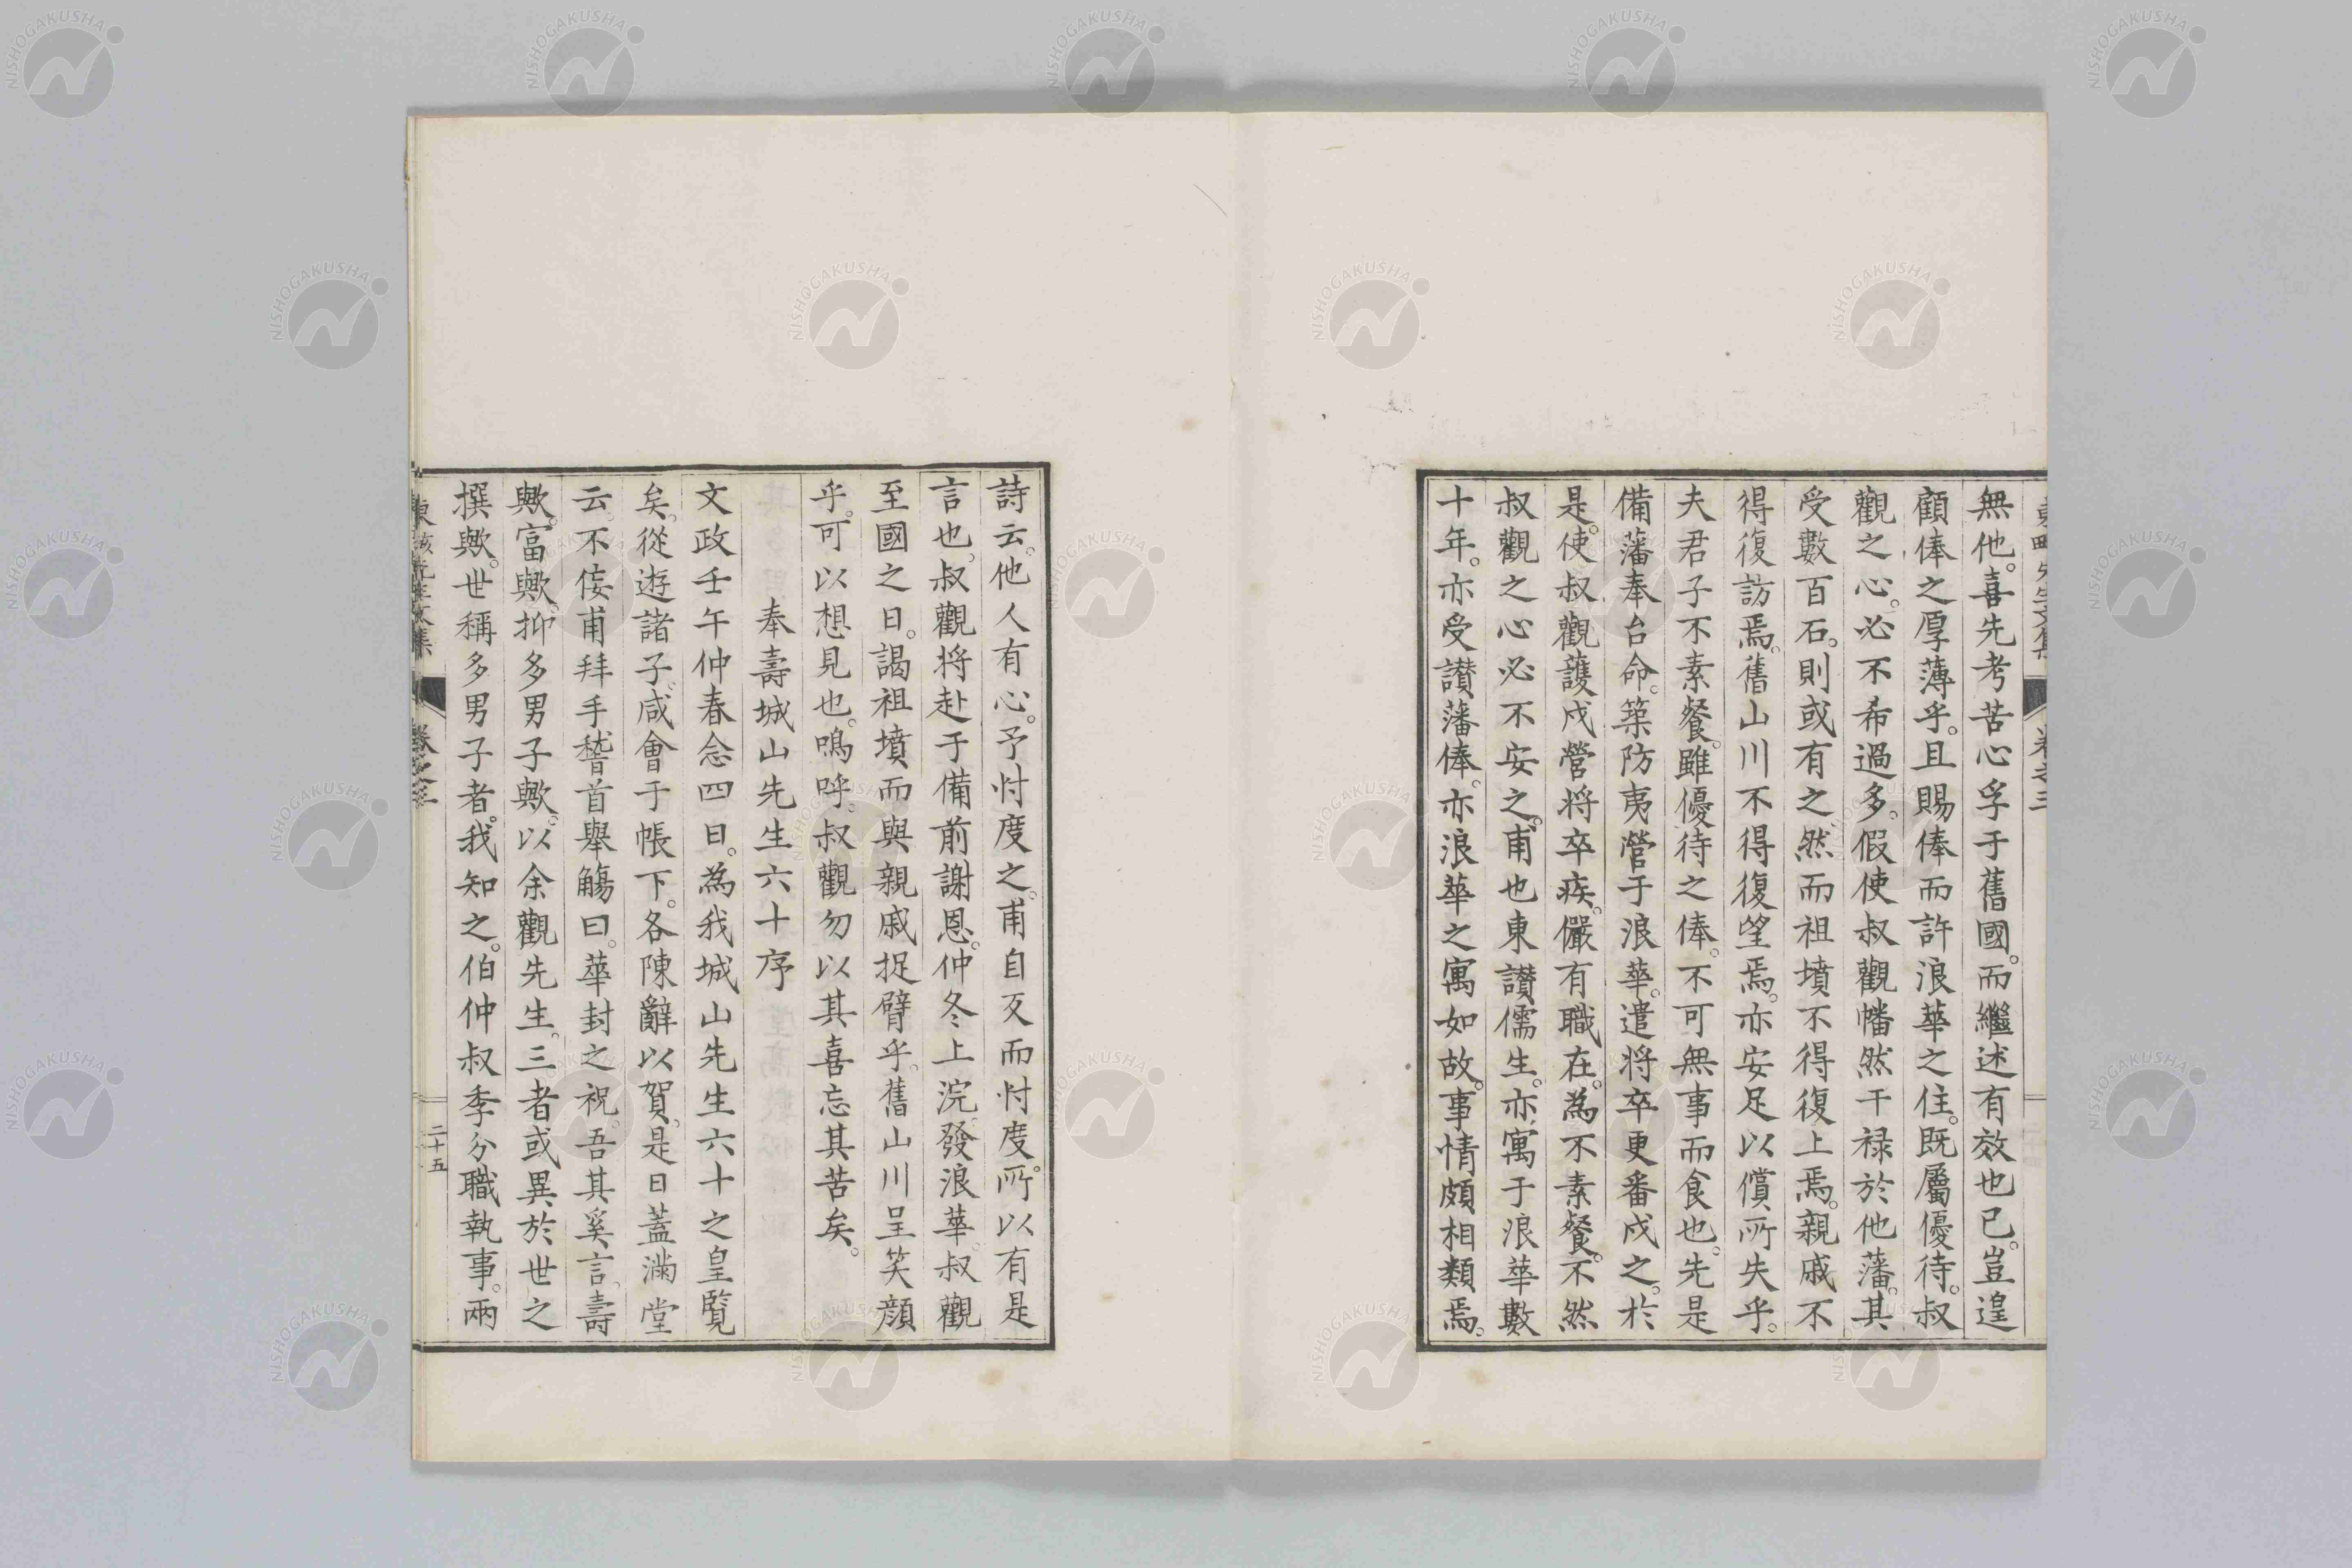 無他。喜先考苦心孚于舊國。而繼述有效也已。豈遑
顧俸之厚薄乎。且賜俸而許浪華之住。既屬優待。叔
觀之心。必不希過多。假使叔觀幡然干禄於他藩。其
受數百石。則或有之。然而祖墳不得復上焉。親戚不
得復訪焉。舊山川不得復望焉。亦安足以償所失乎。
夫君子不素餐。雖優待之俸。不可無事而食也。先是
備藩奉台命。築防夷營于浪華。遣将卒更番戍之。於
是。使叔觀護戍營将卒疾。儼有職在。為不素餐。不然
叔觀之心必不安之。甫也東讃儒生。亦寓于浪華數
十年。亦受讃藩俸。亦浪華之寓如故。事情頗相類焉。
詩云。他人有心。予忖度之。甫自反而忖度。所以有是
言也。叔觀将赴于備前謝恩。仲冬上浣。發浪華。叔觀
至國之日。謁祖墳而與親戚捉臂乎。舊山川呈笑顔
乎。可以想見也。嗚呼。叔觀勿以其喜忘其苦矣。
奉壽城山先生六十序
文政壬午仲春念四日。為我城山先生六十之皇覧
矣。從遊諸子。咸會于帳下。各陳辭以賀。是日蓋滿堂
云。不佞甫拜手稽首舉觴曰。華封之祝。吾其奚言。壽
歟。富歟。抑多男子歟。以余觀先生。三者或異於世之
撰歟。世稱多男子者。我知之。伯仲叔季分職執事。兩
先生文集 卷之三 二十五